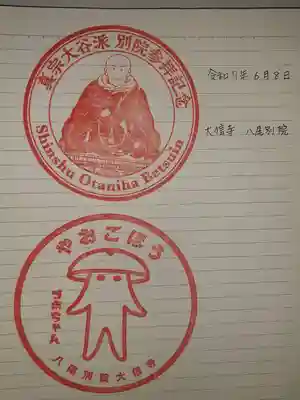 真宗大谷派 別院参拝記念
Shinshu Otaniha Betsuin
令和7年6月8日
大信寺 八尾別院
やおごぼう
八尾別院大信寺